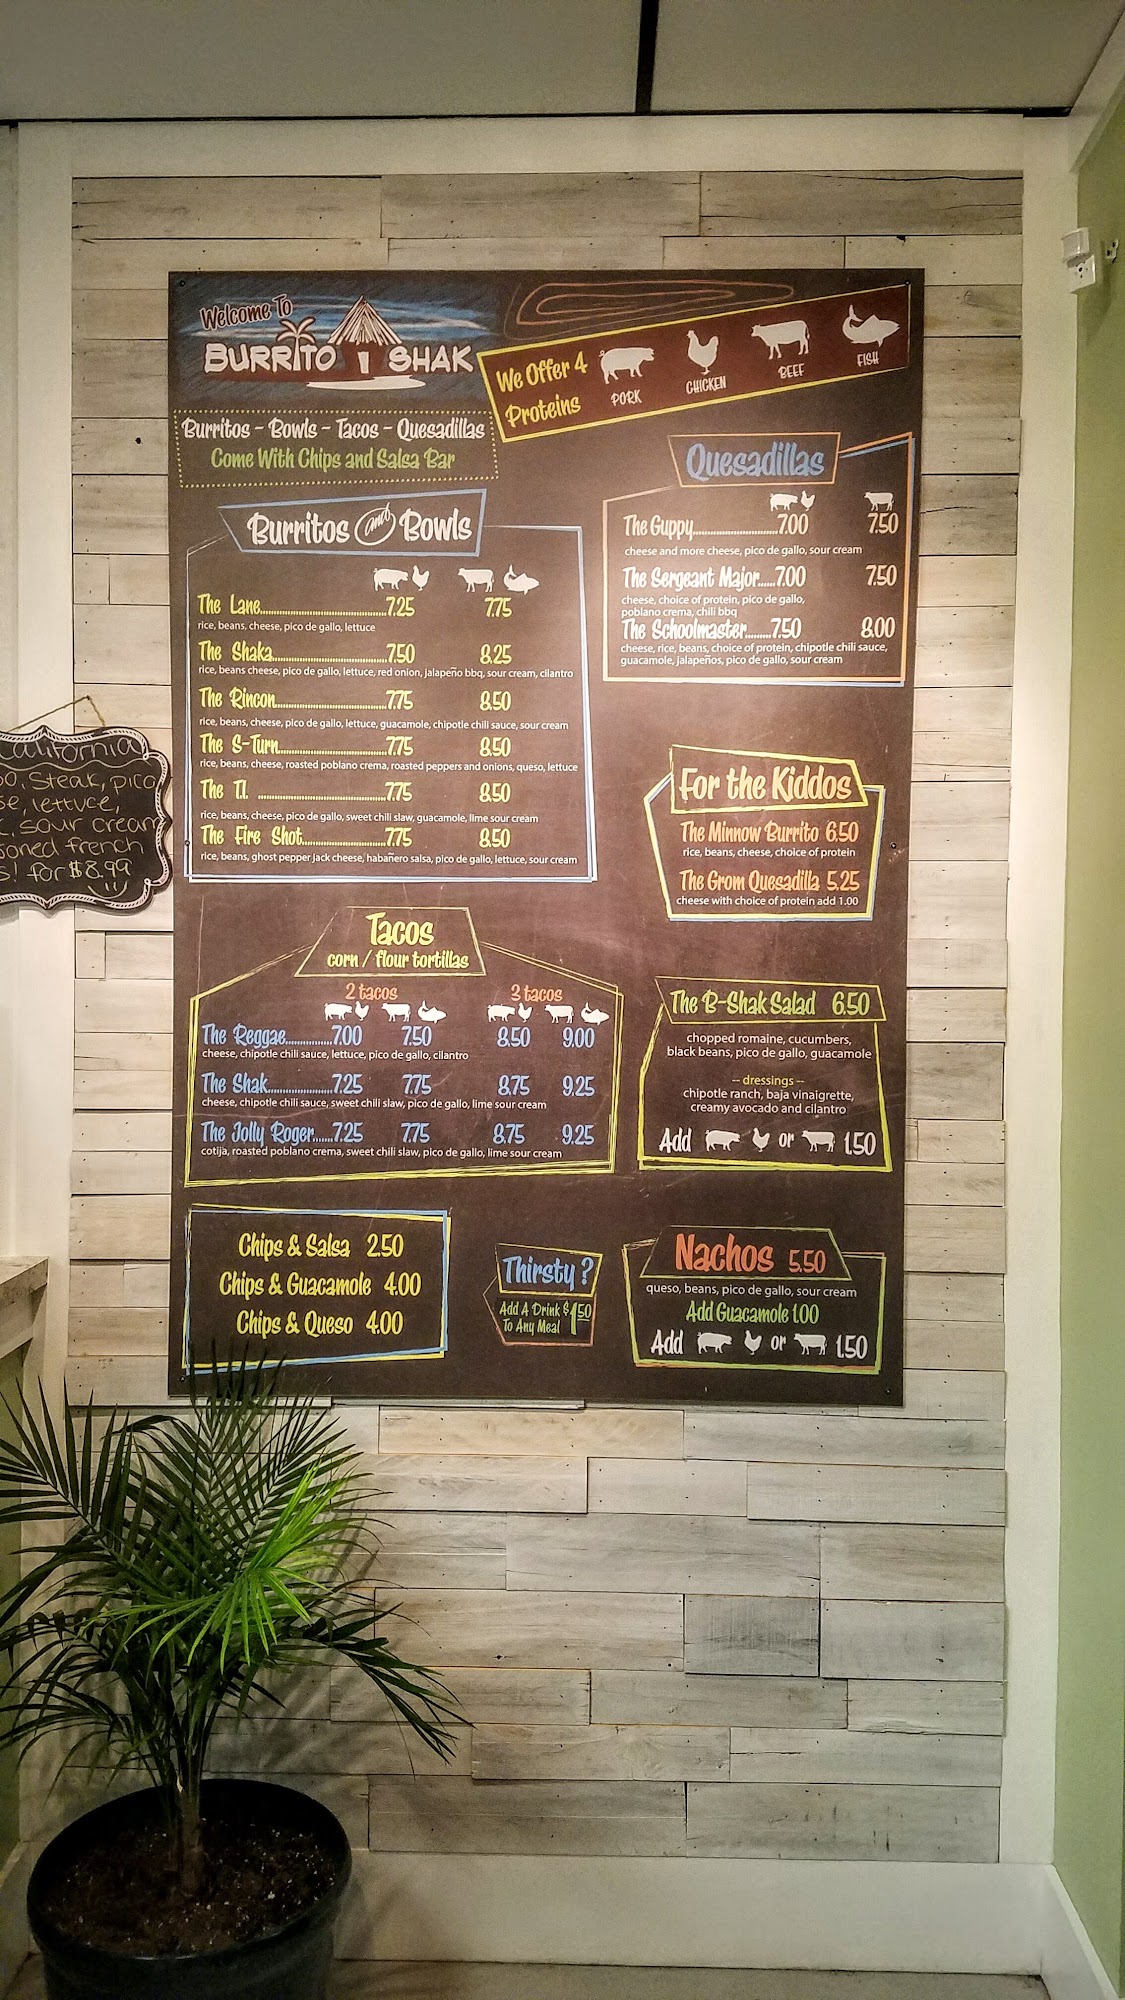 Welcome To
BURRITO SHAK
We Offer 4
Proteins
PORK
CHICKEN
BEEF
FISH
Burritos - Bowls - Tacos - Quesadillas
Come With Chips and Salsa Bar
Burritos and Bowls
The Lane 7.25 7.75
rice, beans, cheese, pico de gallo, lettuce
The Shaka 7.50 8.25
rice, beans cheese, pico de gallo, lettuce, red onion, jalapeño bbq, sour cream, cilantro
The Rincon 7.75 8.50
rice, beans, cheese, pico de gallo, lettuce, guacamole, chipotle chili sauce, sour cream
The S-Turn 7.75 8.50
rice, beans, cheese, roasted poblano crema, roasted peppers and onions, queso, lettuce
The T.I. 7.75 8.50
rice, beans, cheese, pico de gallo, sweet chili slaw, guacamole, lime sour cream
The Fire Shot 7.75 8.50
rice, beans, ghost pepper jack cheese, habañero salsa, pico de gallo, lettuce, sour cream
Quesadillas
The Guppy 7.00 7.50
cheese and more cheese, pico de gallo, sour cream
The Sergeant Major 7.00 7.50
cheese, choice of protein, pico de gallo,
poblano crema, chili bbq
The Schoolmaster 7.50 8.00
cheese, rice, beans, choice of protein, chipotle chili sauce,
guacamole, jalapeños, pico de gallo, sour cream
For the Kiddos
The Minnow Burrito 6.50
rice, beans, cheese, choice of protein
The Grom Quesadilla 5.25
cheese with choice of protein add 1.00
Tacos
corn / flour tortillas
2 tacos 3 tacos
The Reggae 7.00 7.50 8.50 9.00
cheese, chipotle chili sauce, lettuce, pico de gallo, cilantro
The Shak 7.25 7.75 8.75 9.25
cheese, chipotle chili sauce, sweet chili slaw, pico de gallo, lime sour cream
The Jolly Roger 7.25 7.75 8.75 9.25
cotija, roasted poblano crema, sweet chili slaw, pico de gallo, lime sour cream
The B-Shak Salad 6.50
chopped romaine, cucumbers,
black beans, pico de gallo, guacamole
-- dressings --
chipotle ranch, baja vinaigrette,
creamy avocado and cilantro
Add or 1.50
Chips & Salsa 2.50
Chips & Guacamole 4.00
Chips & Queso 4.00
Thirsty?
Add A Drink $1.50
To Any Meal
Nachos 5.50
queso, beans, pico de gallo, sour cream
Add Guacamole 1.00
Add or 1.50
Steak, pico
lettuce,
sour cream
french
for $8.99